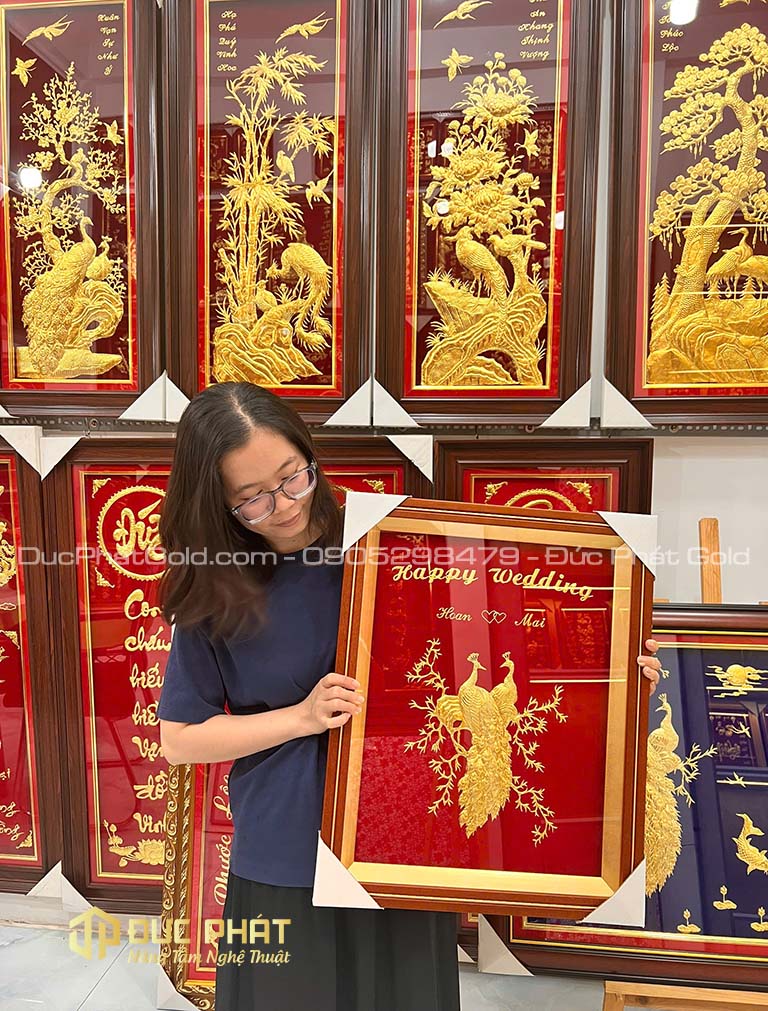 Xuân
Vạn
Sự
Như
Ý
Hạ
Phú
Quý
Vinh
Hoa
Thu
An
Khang
Thịnh
Vượng
Phúc
Lộc
DucPhatGold.com - 0905298479 - Đức Phát Gold
Happy Wedding
Hoan Mai
Đức
Con
cháu
hiếu
Vinh
Phước
ĐỨC PHÁT
Nâng Tầm Nghệ Thuật